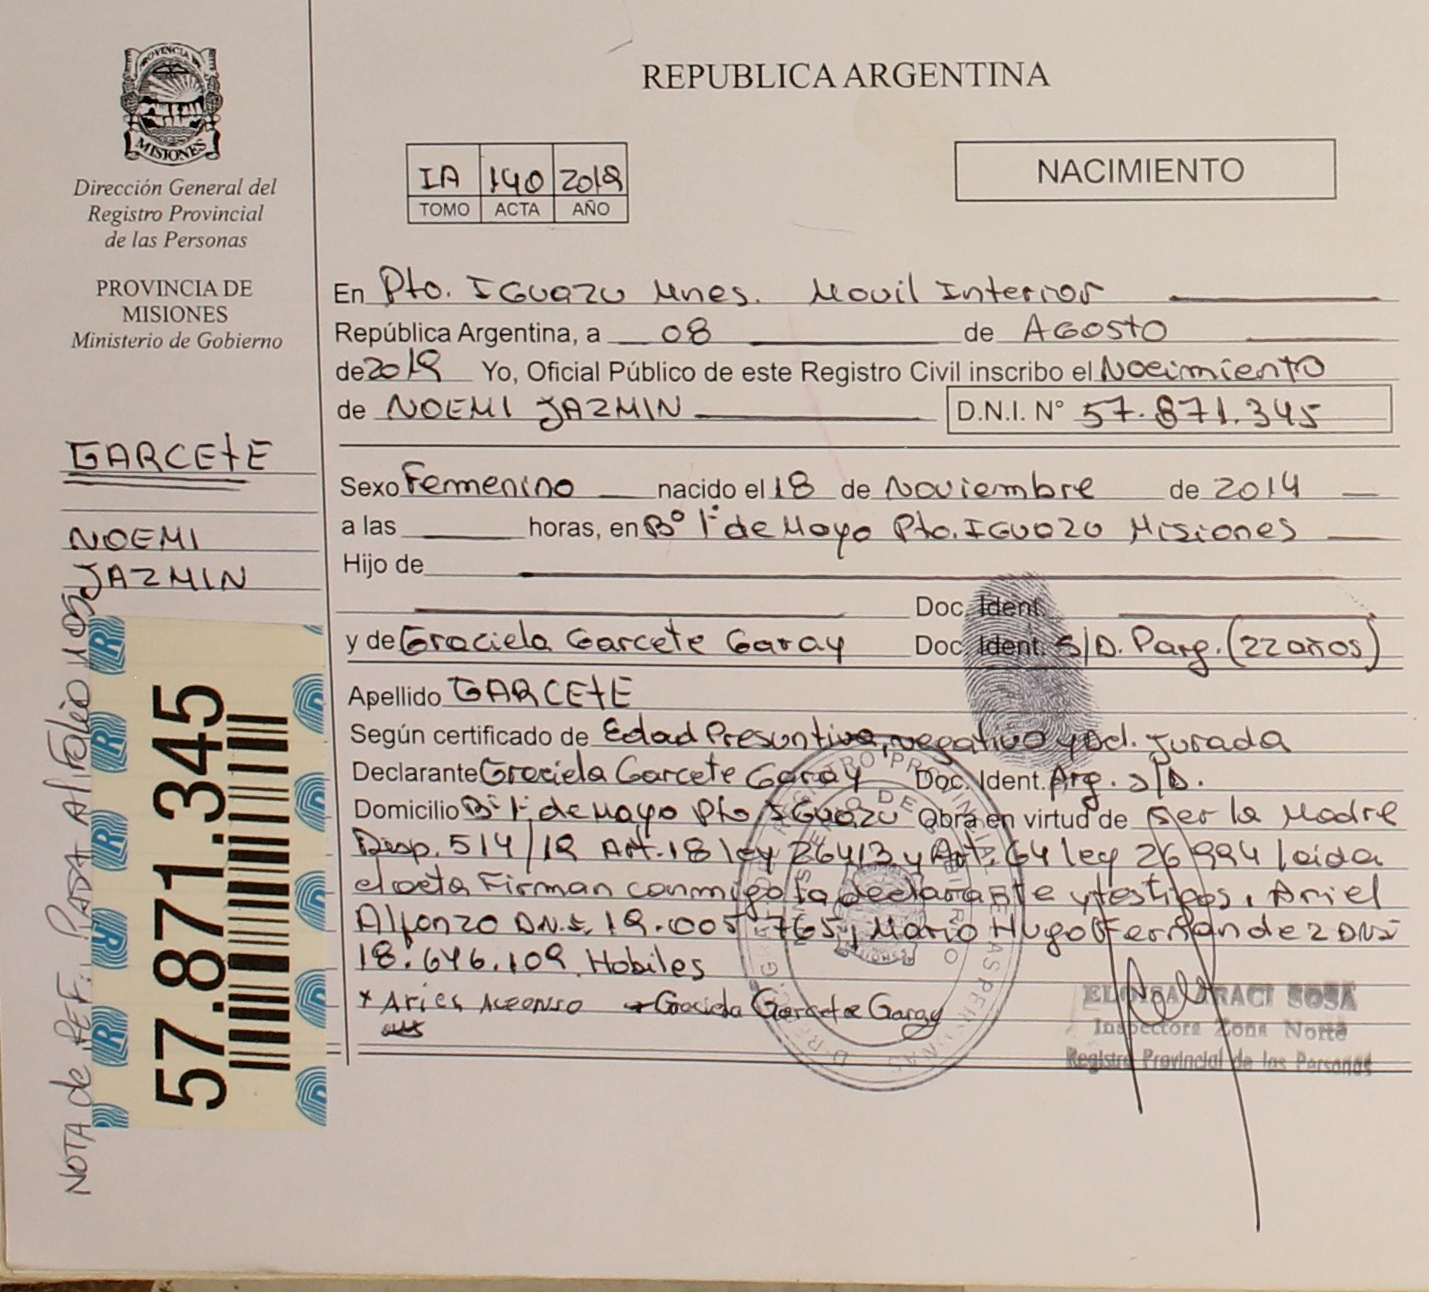 PROVINCIA DE
MISIONES
Dirección General del
Registro Provincial
de las Personas
PROVINCIA DE
MISIONES
Ministerio de Gobierno
GARCETE
NOEMI
JAZMIN
57.871.345
REPUBLICA ARGENTINA
IA 140 2019
TOMO ACTA AÑO
NACIMIENTO
En Pto. IGUAZU Mnes. Movil Interior
República Argentina, a 08 de AGOSTO
de 2019 Yo, Oficial Público de este Registro Civil inscribo el Nacimiento
de NOEMI JAZMIN D.N.I. N° 57.871.345
Sexo Femenino nacido el 18 de Noviembre de 2014
a las horas, en B° 1° de Mayo Pto. IGUAZU Misiones
Hijo de
Doc. Ident.
y de Graciela Garcete Garay Doc. Ident. S/D. Parg. (22 años)
Apellido GARCETE
Según certificado de Edad Presuntiva, negativo y Dcl. Jurada
Declarante Graciela Garcete Garay Doc. Ident. Arg. S/D.
Domicilio B° 1° de Mayo Pto IGUAZU Obra en virtud de Ser la Madre
Disp. 514/19 Art. 18 ley 26413 y Art. 64 ley 26994 leida
el acta Firman conmigo la declarante y testigos, Ariel
Alfonzo DNI. 19.005.765 y Mario Hugo Fernandez DNI
18.646.109 Habiles
x Graciela Garcete Garay
Inspectora Zona Norte
Registro Provincial de las Personas